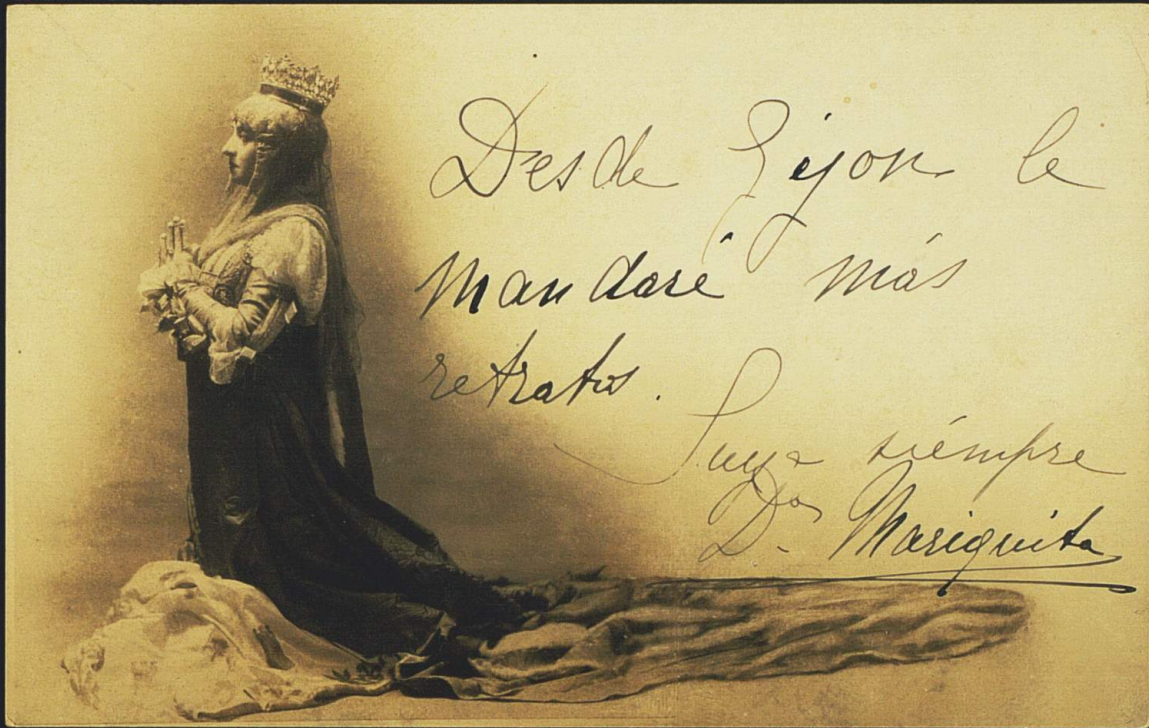 Desde Gijon le
mandaré más
retratos.
Suya siémpre
Dª Mariquita